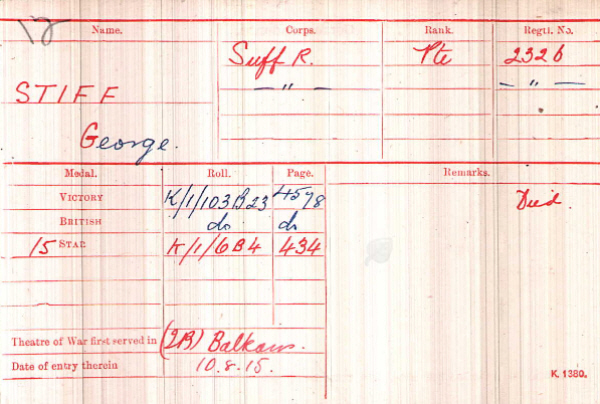 Name. Corps. Rank. Regtl. No.
Suff R. Pte 2326
STIFF — " — — " —
George.
Medal. Roll. Page. Remarks.
VICTORY K/1/103B23 4578 Died.
BRITISH do do
15 STAR K/1/6B4 434
Theatre of War first served in (2B) Balkans.
Date of entry therein 10.8.15.
K. 1380.